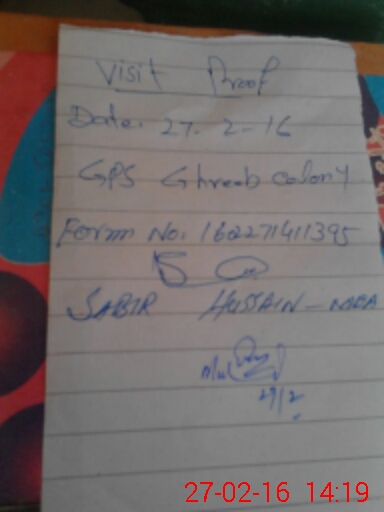 Visit Proof
Date. 27.2-16
GPS Ghreeb colony
Form No. 160227141395
SABIR HUSSAIN - MEA
27/2
27-02-16 14:19